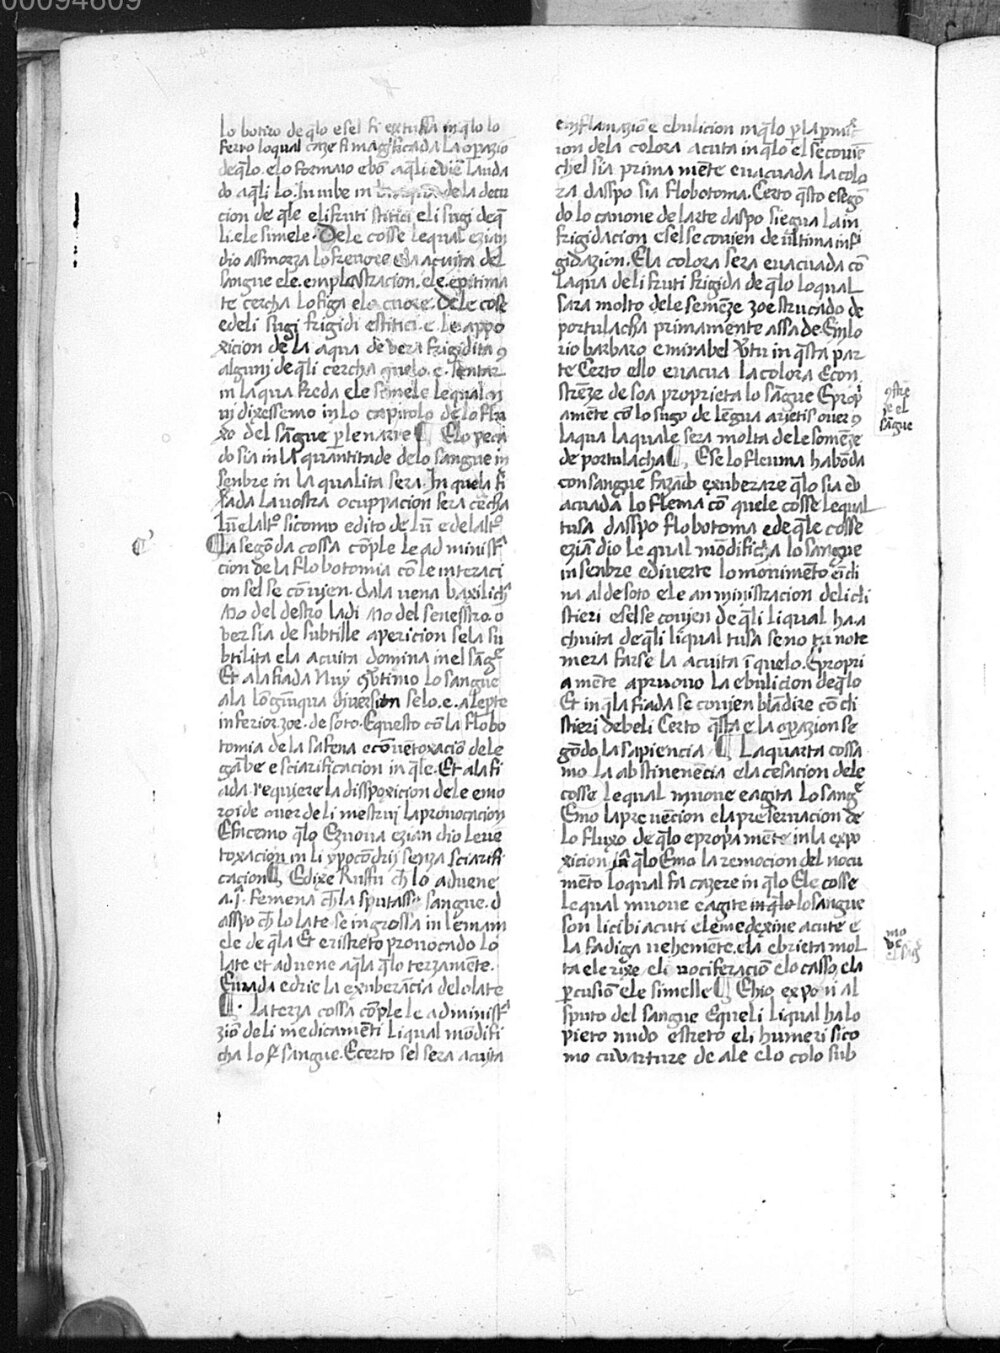 00094609
lo botiro de q̄lo e sel fi extussa in q̄lo lo
ferro loqual caze fi magnificada la oparazio
de q̄lo. elo formaio ebō aq̄li e viē lauda
do aq̄li lo. Iumbe in de la decu
cion de q̄le eli fruti stitici eli sugi de q̄
li. ele simele. Dele cosse le qual ezian
dio assmorza lo frevore ela acuita del
sangue ele. emplastracion. ele. epitima
te cercha lo figa elo cuore. Dele cose
e deli sugi frigidi e stitici. e. le appo
xicion de la aqua de vera frigidita 9
alguni de q̄li cercha quelo. e. sentar
in laqua freda ele semele lequal in
uj dixessemo in lo capitolo de lo flu
xo del sāngue p̄lenarie ¶ E lo peca
do sia in la quantita de delo sangue in
senbre in la qualita sera. In quela fi
xada la vostra occuppacion sera cercha
lūn el altro sicomo edito de lūn e del altro
¶ La segōda cossa cōple le ad ministra
cion de la flobotomia cō le interaci
on sel se cōvjen. dala vena baxilicha
Mo del destro ladi Mo del senestro. o
ver sia de subtille apericion se la su
btilita ela acuita domina in el sāngue
Et ala fiada Nuy 9vtimo lo sangue
ala lōginqua diversion se lo. e. a le pte
inferior. zoe. de soto. E questo cō la flobo
tomia de la safena e cō vētoxaciō de le
gābe e sciarificacion in q̄le. Et ala fi
ada requiere la dissposicion de le emo
roide over de li mestruj la provocacion
E facemo q̄lo E nova ezian dio le ve
toxacion in li ypocōdrij senza sciarifi
cacion ¶ E dixe Ruffu ch̄ lo advene
a. j. femena ch̄ la sputasse sangue. d
asspo ch̄ lo late se ingrossa in le mam
ele de q̄la Et e ristreto provocado lo
late et advene aq̄la q̄lo terzamēte.
E vada edrie la exuberācia de lo late
¶. La terza cossa cōple le administra
ziō de li medicamēti li qual mōdifi
cha lo sangue. E certo sel sera acuita
e inflamazion e ebulicion in q̄lo p̄ la p̄mist
ion dela colora acuta in q̄lo el se covie
ch el sia prima mēte evacuada la colo
ra dasspo sia flobotoma. Certo q̄sto e segō
do lo canone de l arte daspo siegua la in
frigidacion e sel se covjen de ultima infri
gidazion. E la colora sera evacuada cō
l aqua de li fruti frigida de q̄lo lo qual
sara molto de le semēze zoe strucado de
portulacha primamente assa de Emlo
rio barbaro e mirabel v̄tu in q̄sta par
te Certo ello evacua la colora E con
strēze de soa proprieta lo sāngue E propi
amēte cō lo sugo de lēgua arjetis over 9
laqua la quale sera molta de le somēze
de portulacha ¶. E se lo fleuma habōda
con sangue fazādo exuberare q̄lo sia ev
acuada lo flema cō quele cosse le qual
tusa dasspo flobotoma e de q̄le cosse
eziādio le qual mōdificha lo sangue
in senbre e diverte lo movimēto ēcli
na al de soto ele an ministracion de li cli
stieri e sel se covjen de q̄li li qual ha a
chuita de q̄li li qual tusa se no tu note
mera farse la acuita ī quelo. E propri
a mēte apruovo la ebulicion de q̄lo
Et in q̄la fiada se covjen blādire cō cli
stieri debeli Certo q̄sta e la operazion se
gōdo la sapiencia ¶ La quarta cossa
mo la abstinenēcia ela cesacion de le
cosse le qual muove e agita lo sangue
E mo la pre vēcion ela preservacion de
lo fluxo de q̄lo e propa mēte in la expo
xicion in q̄lo E mo la remocion del nocu
mēto lo qual fa cazere in q̄lo E le cosse
le qual muove e agite in q̄lo lo sangue
son li cibi acuti e le medexine acute e
la fadiga vehemēte. ela ebrieta mol
ta ele rixe. eli vociferaciō elo casso, ela
p̄cusion ele simelle ¶ E hio expo ni al
sputo del sangue e queli li qual ha lo
pieto nudo e streto eli humeri sico
mo cuvarture de ale elo colo sub
¶
9stre
ze el
sāgue
mo
ve